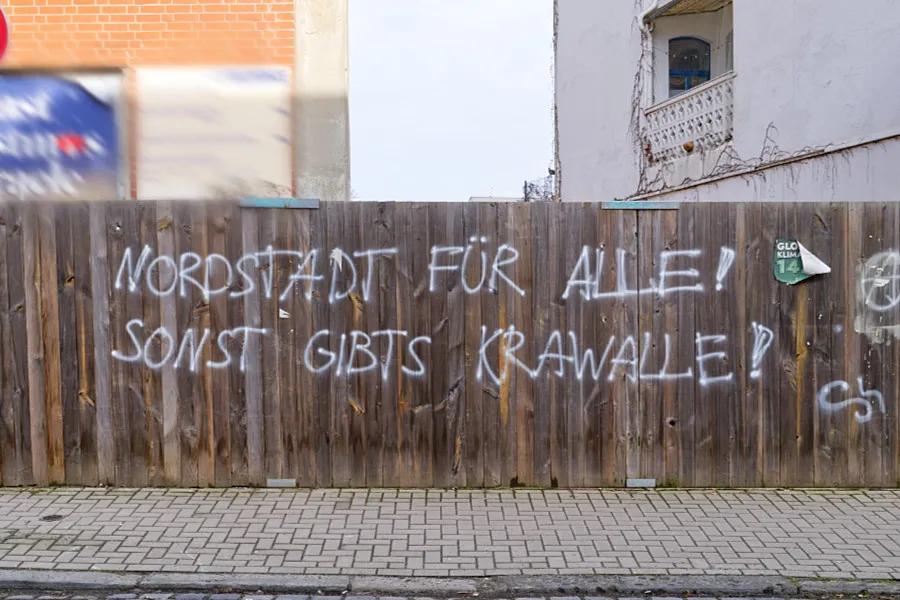 NORDSTADT FÜR ALLE!
SONST GIBTS KRAWALLE!
GLO
KLIMA
14